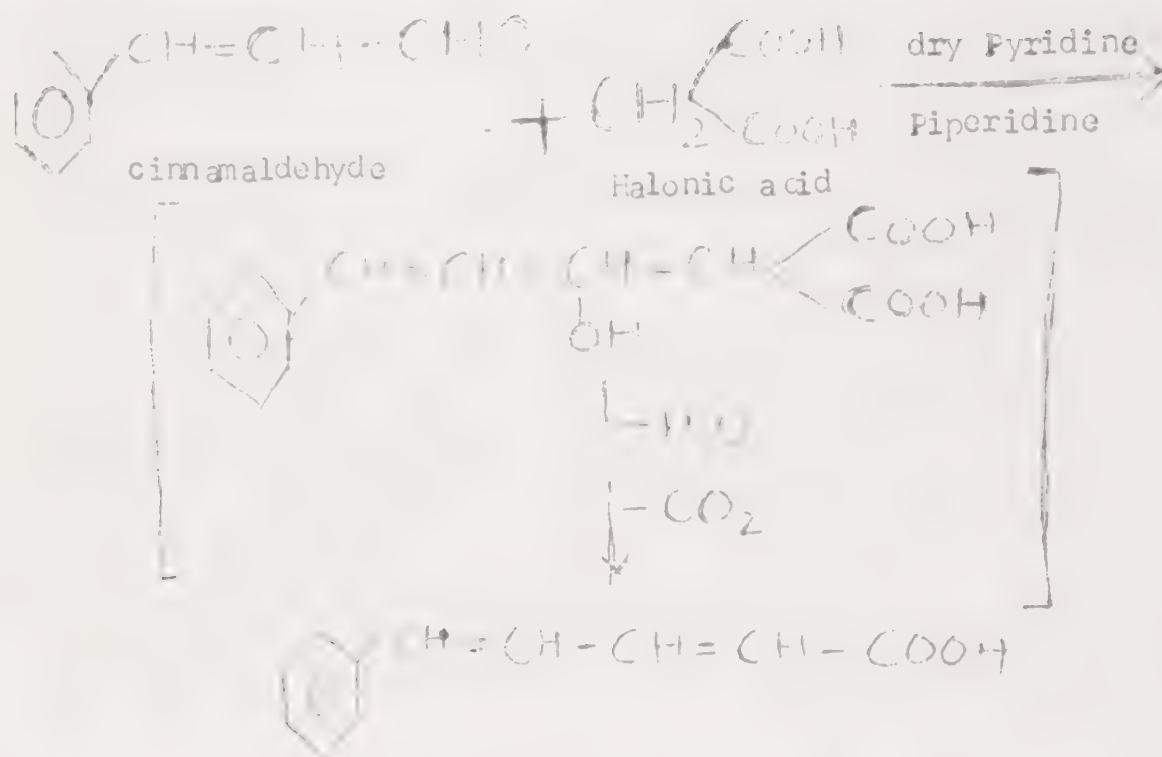 CH=CH-CHO + CH2 COOH COOH dry Pyridine Piperidine
cinnamaldehyde
Halonic acid
CH=CH-CH-CH COOH COOH
OH
-H2O
-CO2
CH=CH-CH=CH-COOH